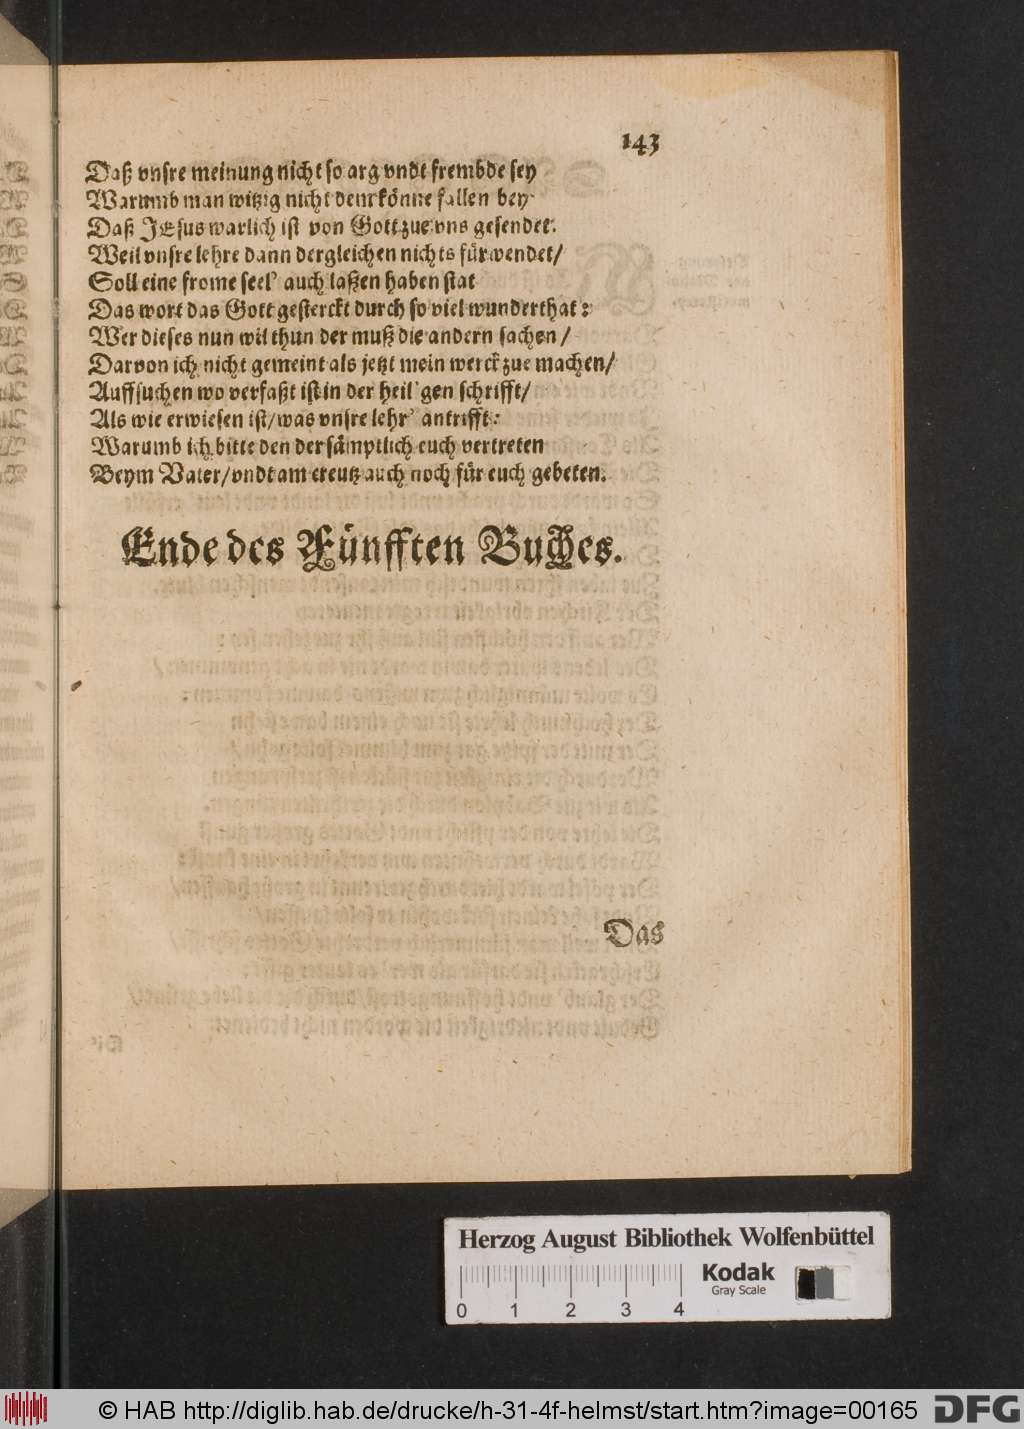 143
Daß vnsre meinung nicht so arg vndt frembde sey
Warumb man witzig nicht dem könne fallen bey
Daß JEsus warlich ist von Gott zue vns gesendet:
Weil vnsre lehre dann dergleichen nichts fürwendet/
Soll eine frome seel' auch laßen haben stat
Das wort das Gott gesterckt durch so viel wunderthat:
Wer dieses nun wil thun der muß die andern sachen/
Darvon ich nicht gemeint als jetzt mein werck zue machen/
Auffsuchen wo verfaßt ist in der heil'gen schrifft/
Als wie erwiesen ist/was vnsre lehr' antrifft:
Warumb ich bitte den der sämptlich euch vertreten
Beym Vater/vndt am creutz auch noch für euch gebeten.
Ende des Fünfften Buches.
Das
Herzog August Bibliothek Wolfenbüttel
Kodak
Gray Scale
0 1 2 3 4
© HAB http://diglib.hab.de/drucke/h-31-4f-helmst/start.htm?image=00165
DFG